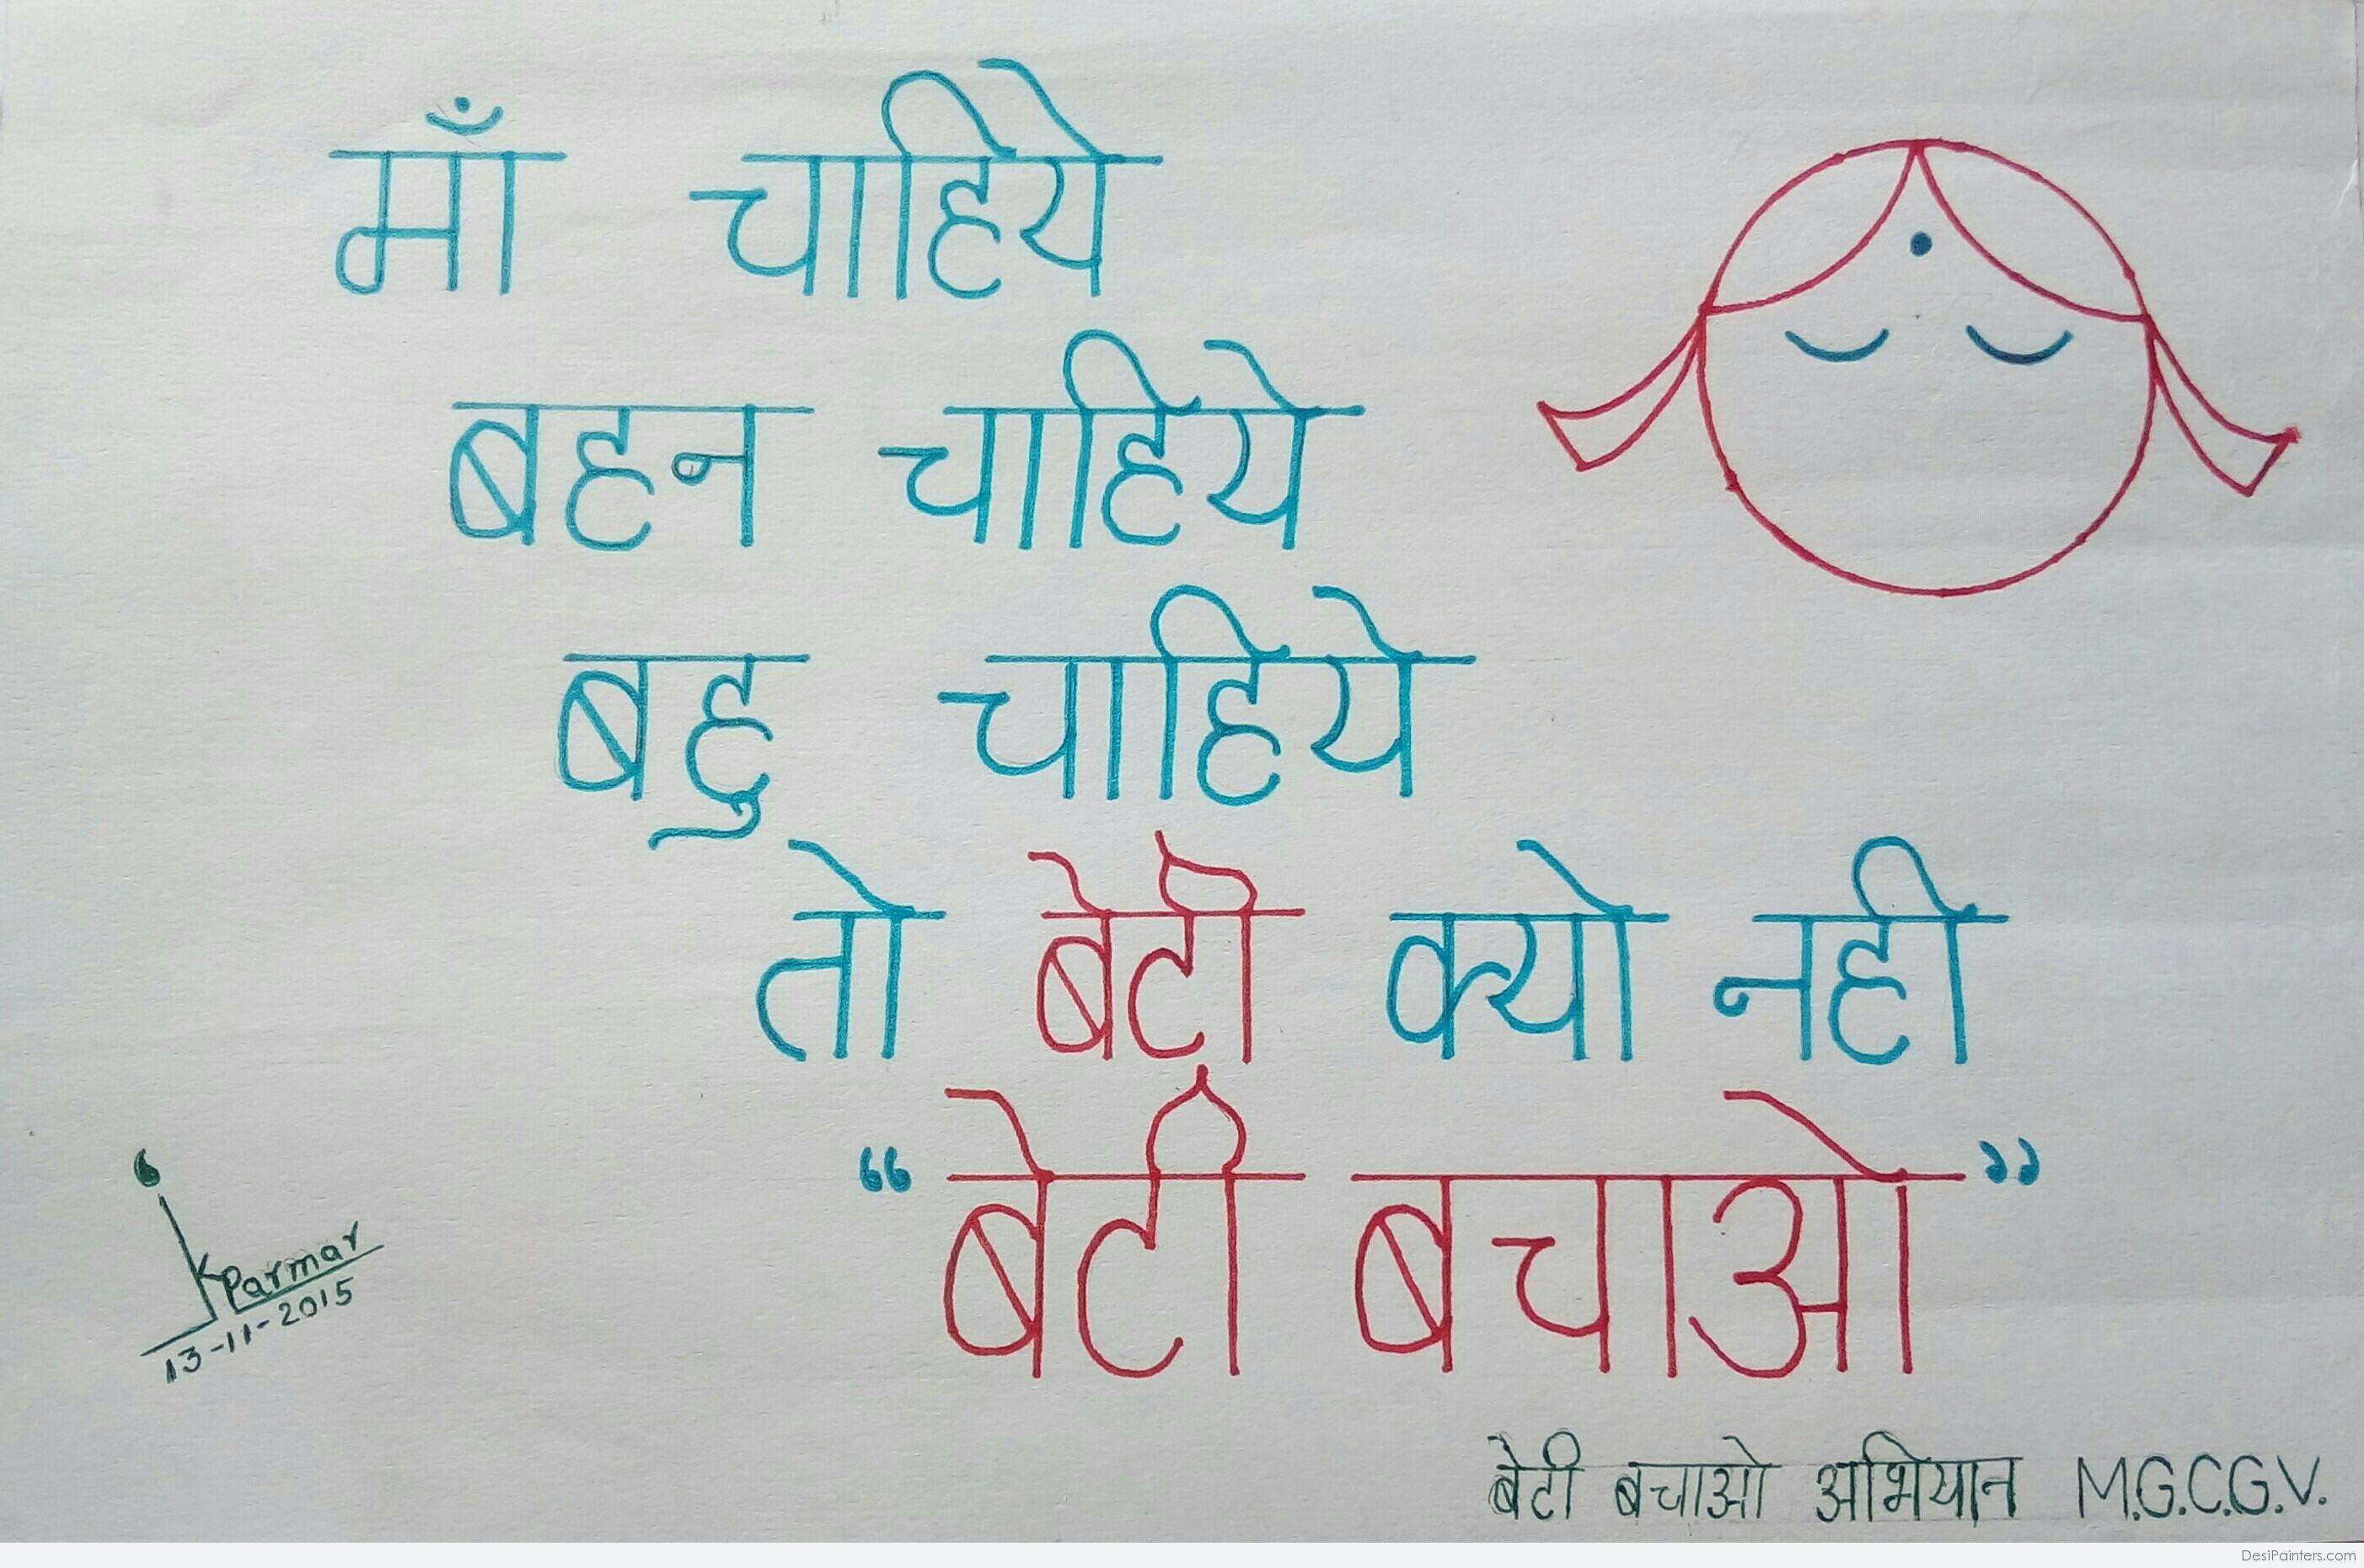 माँ चाहिये
बहन चाहिये
बहु चाहिये
तो बेटी क्यो नही
“बेटी बचाओ”
K Parmar
13-11-2015
बेटी बचाओ अभियान M.G.C.G.V.
DesiPainters.com